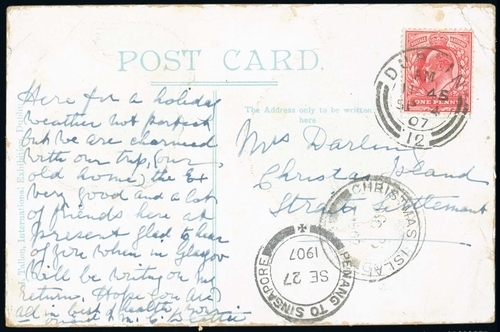 POST CARD.
The Address only to be written here
Here for a holiday
weather not perfect
but we are charmed
with our trip, our
old home, the Ex
very good and a lot
of friends here at
present glad to hear
of you when in Glasgow
Will be writing on my
returns. Hope you are
all in best of health
Mrs Darling
Christmas Island
Straits Settlement
ONE PENNY
AM
45
07
12
CHRISTMAS ISLAND
PENANG TO SINGAPORE
SE 27
1907
International Exhibition, Dublin